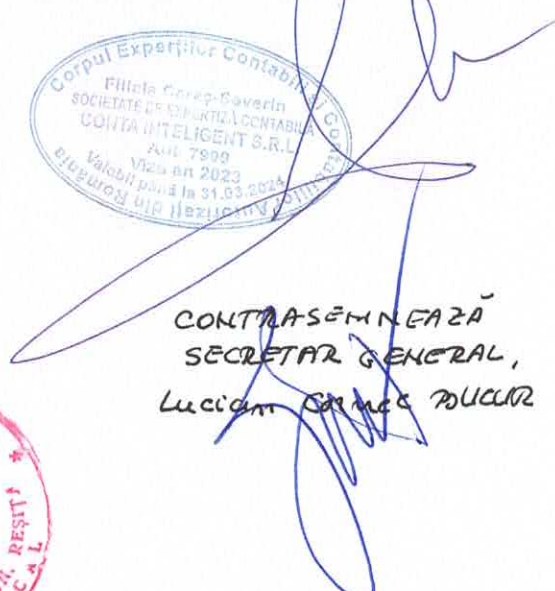 Corpul Experţilor Contabili şi Contabililor Autorizaţi din România
Filiala Caraş-Severin
SOCIETATE DE EXPERTIZĂ CONTABILĂ
CONTA INTELIGENT S.R.L.
Aut. 7999
Viza an 2023
Valabil până la 31.03.2024
CONTRASEMNEAZĂ
SECRETAR GENERAL,
Lucian Cornel
REŞIŢA *